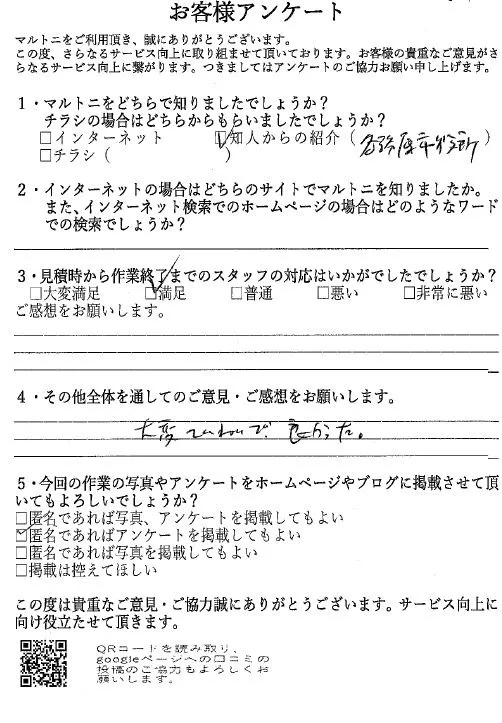 お客様アンケート
マルトニをご利用頂き、誠にありがとうございます。
この度、さらなるサービス向上に取り組ませて頂いております。お客様の貴重なご意見がさ
らなるサービス向上に繋がります。つきましてはアンケートのご協力お願い申し上げます。
1・マルトニをどちらで知りましたでしょうか?
チラシの場合はどちらからもらいましたでしょうか?
□インターネット ☑知人からの紹介(各務原市役所)
□チラシ( )
2・インターネットの場合はどちらのサイトでマルトニを知りましたか。
また、インターネット検索でのホームページの場合はどのようなワード
での検索でしょうか?
3・見積時から作業終了までのスタッフの対応はいかがでしたでしょうか?
□大変満足 ☑満足 □普通 □悪い □非常に悪い
ご感想をお願いします。
4・その他全体を通してのご意見・ご感想をお願いします。
大変ていねいで良かった。
5・今回の作業の写真やアンケートをホームページやブログに掲載させて頂
いてもよろしいでしょうか?
□匿名であれば写真、アンケートを掲載してもよい
☑匿名であればアンケートを掲載してもよい
□匿名であれば写真を掲載してもよい
□掲載は控えてほしい
この度は貴重なご意見・ご協力誠にありがとうございます。サービス向上に
向け役立たせて頂きます。
QRコードを読み取り、
googleページへの口コミの
投稿のご協力もよろしくお
願いします。